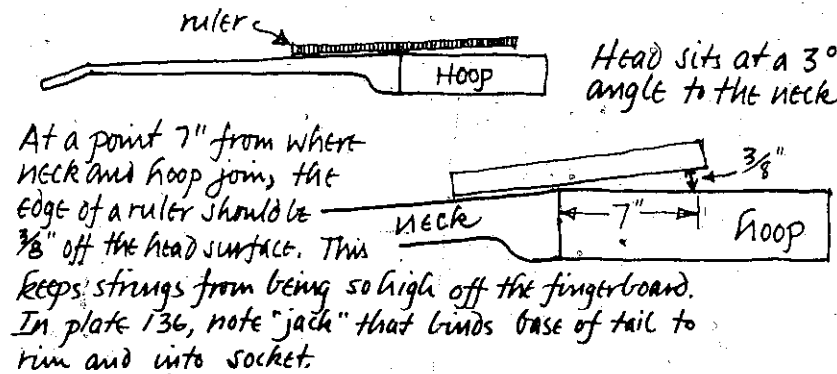 ruler
HOOP
Head sits at a 3°
angle to the neck
At a point 7" from where
neck and hoop join, the
edge of a ruler should be
3/8" off the head surface. This
keeps strings from being so high off the fingerboard.
In plate 136, note "jack" that binds base of tail to
rim and into socket.
3/8"
neck
7"
hoop